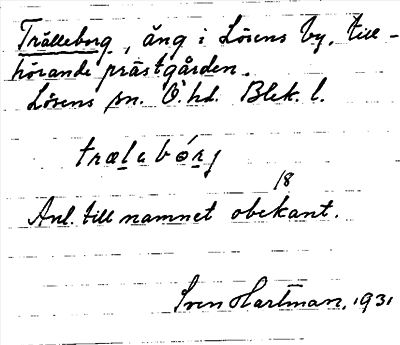 Trälleborg, äng i Lösens by, till-
hörande prästgården.
Lösens sn. Ö. hd. Blek. l.
trælabórj
18
Anl. till namnet obekant.
Sven Hartman, 1931